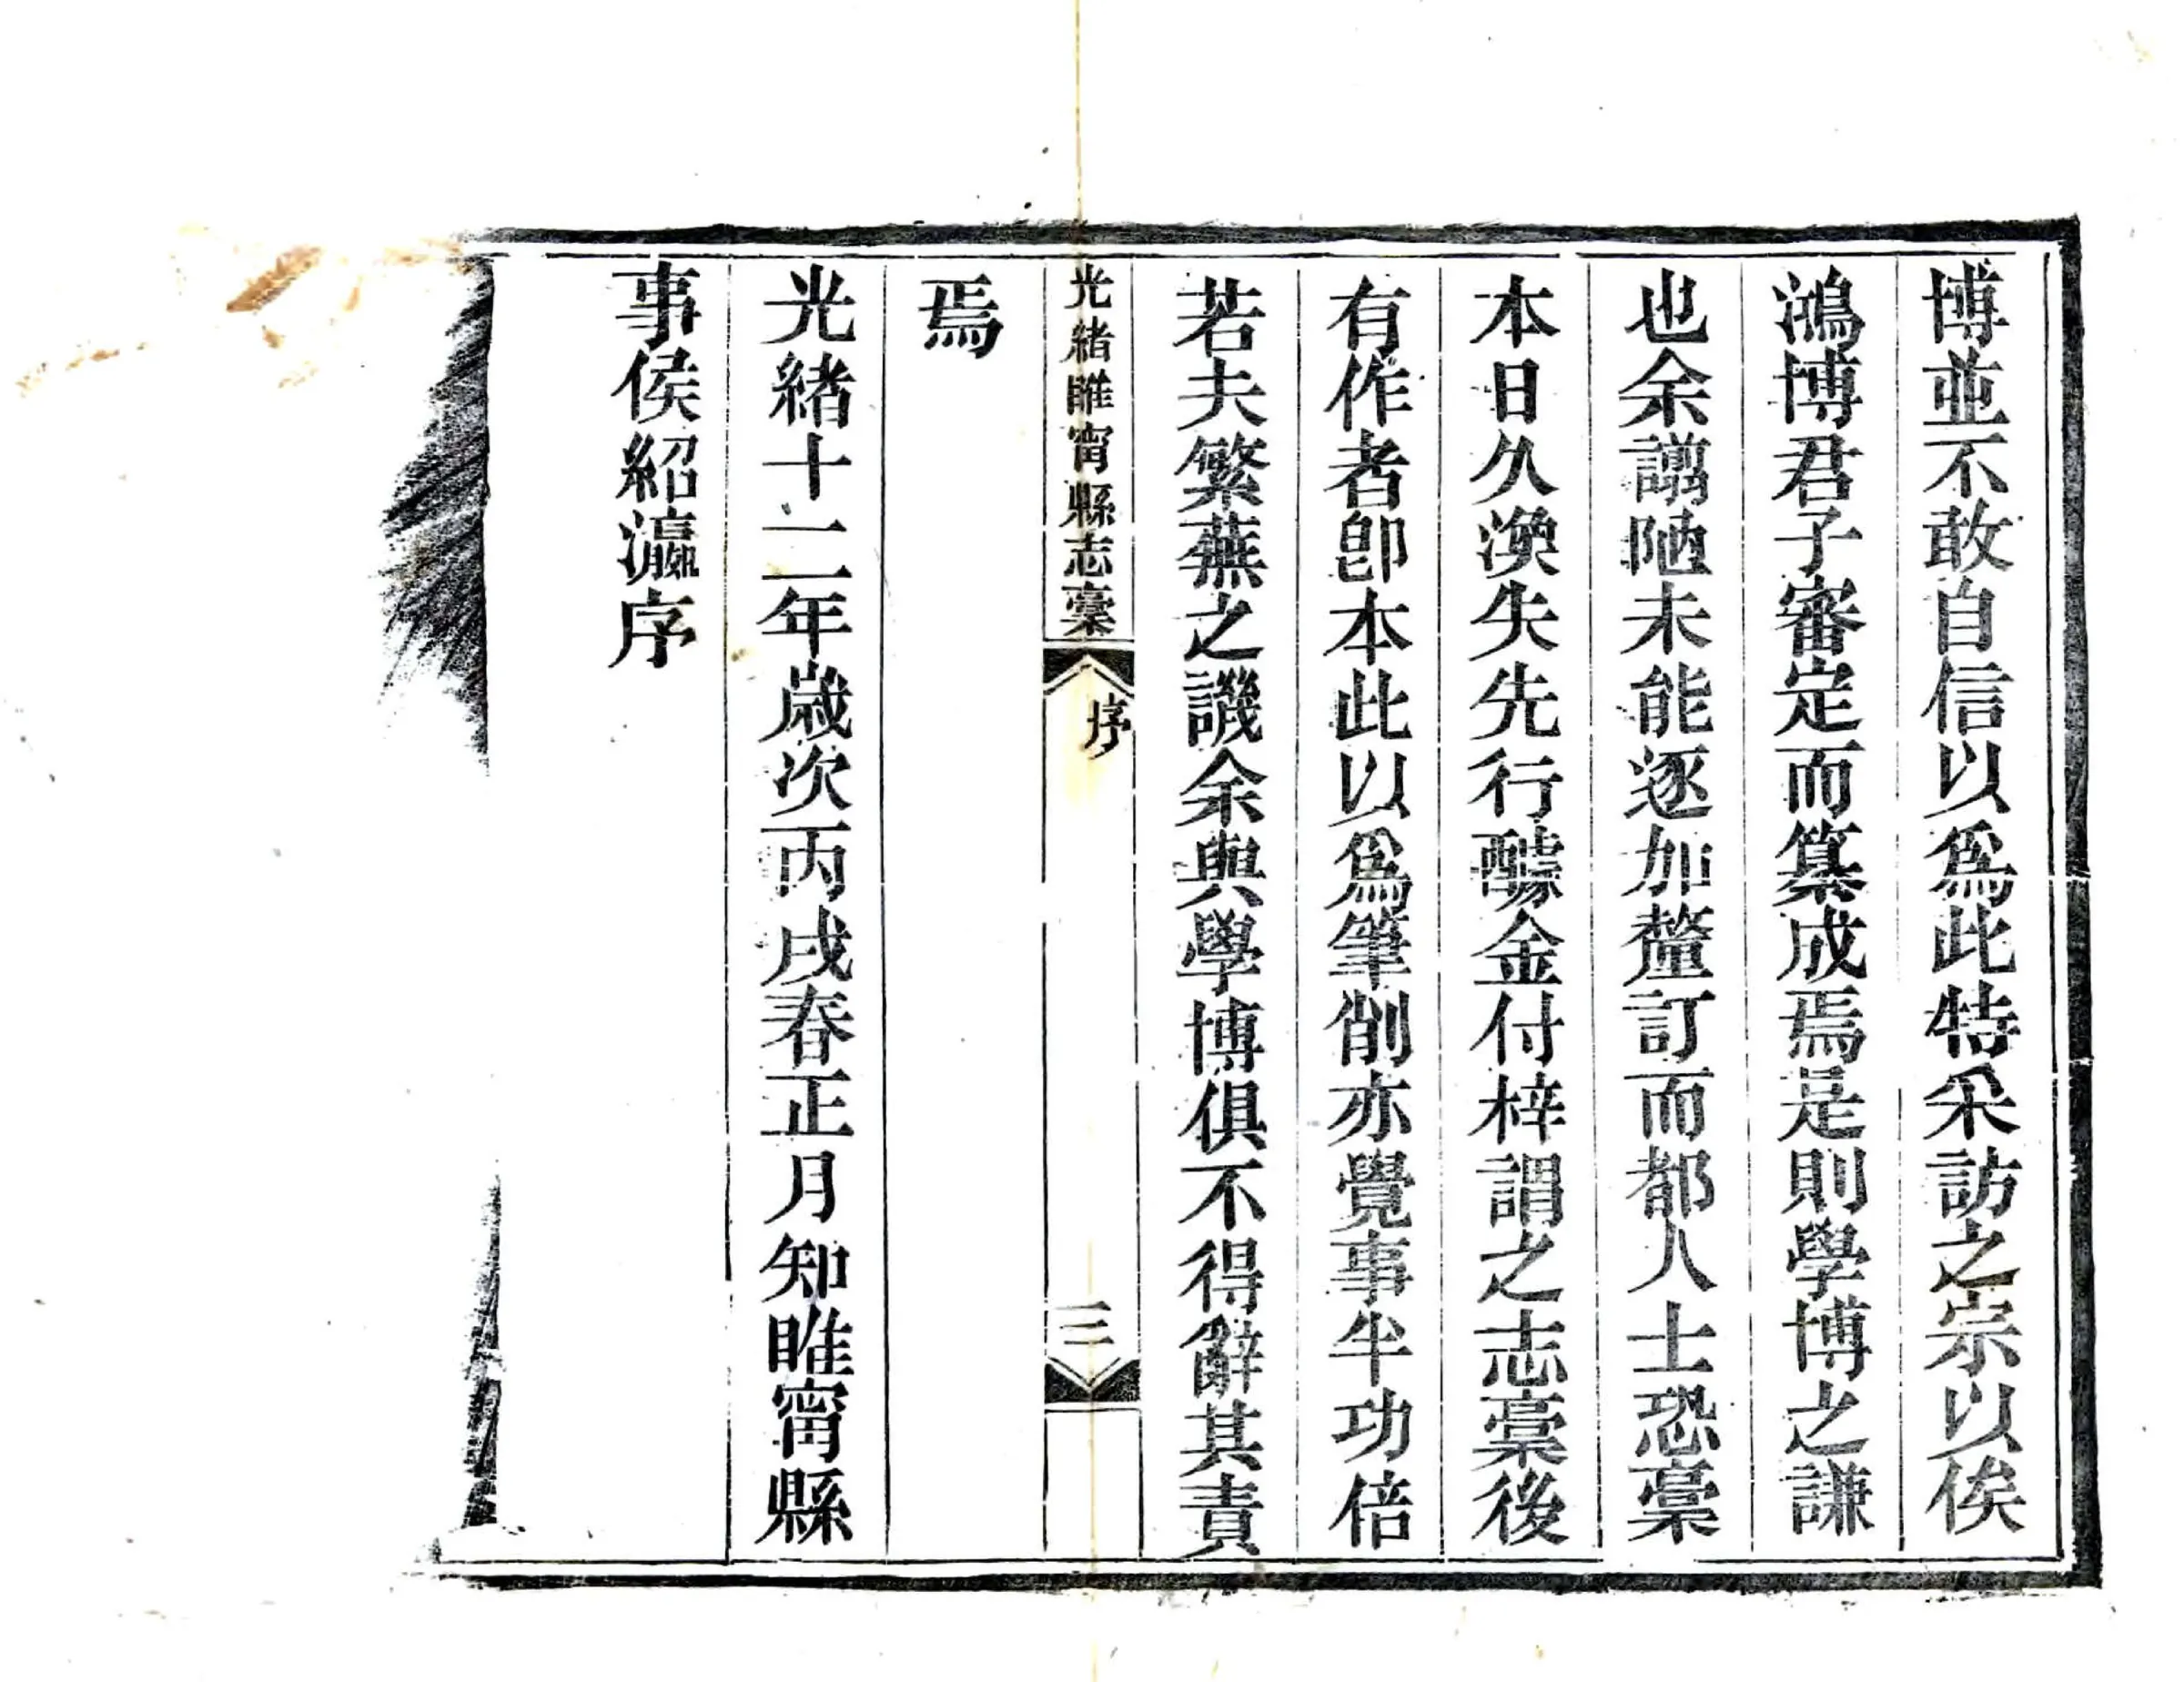 博並不敢自信以爲此特采訪之宗以俟
鴻博君子審定而纂成焉是則學博之謙
也余謭陋未能逐加釐訂而都人士恐稾
本日久渙失先行醵金付梓謂之志稾後
有作者卽本此以爲筆削亦覺事半功倍
若夫繁蕪之譏余與學博俱不得辭其責
光緒睢甯縣志稾 序 三
焉
光緒十二年歲次丙戌春正月知睢甯縣
事侯紹瀛序